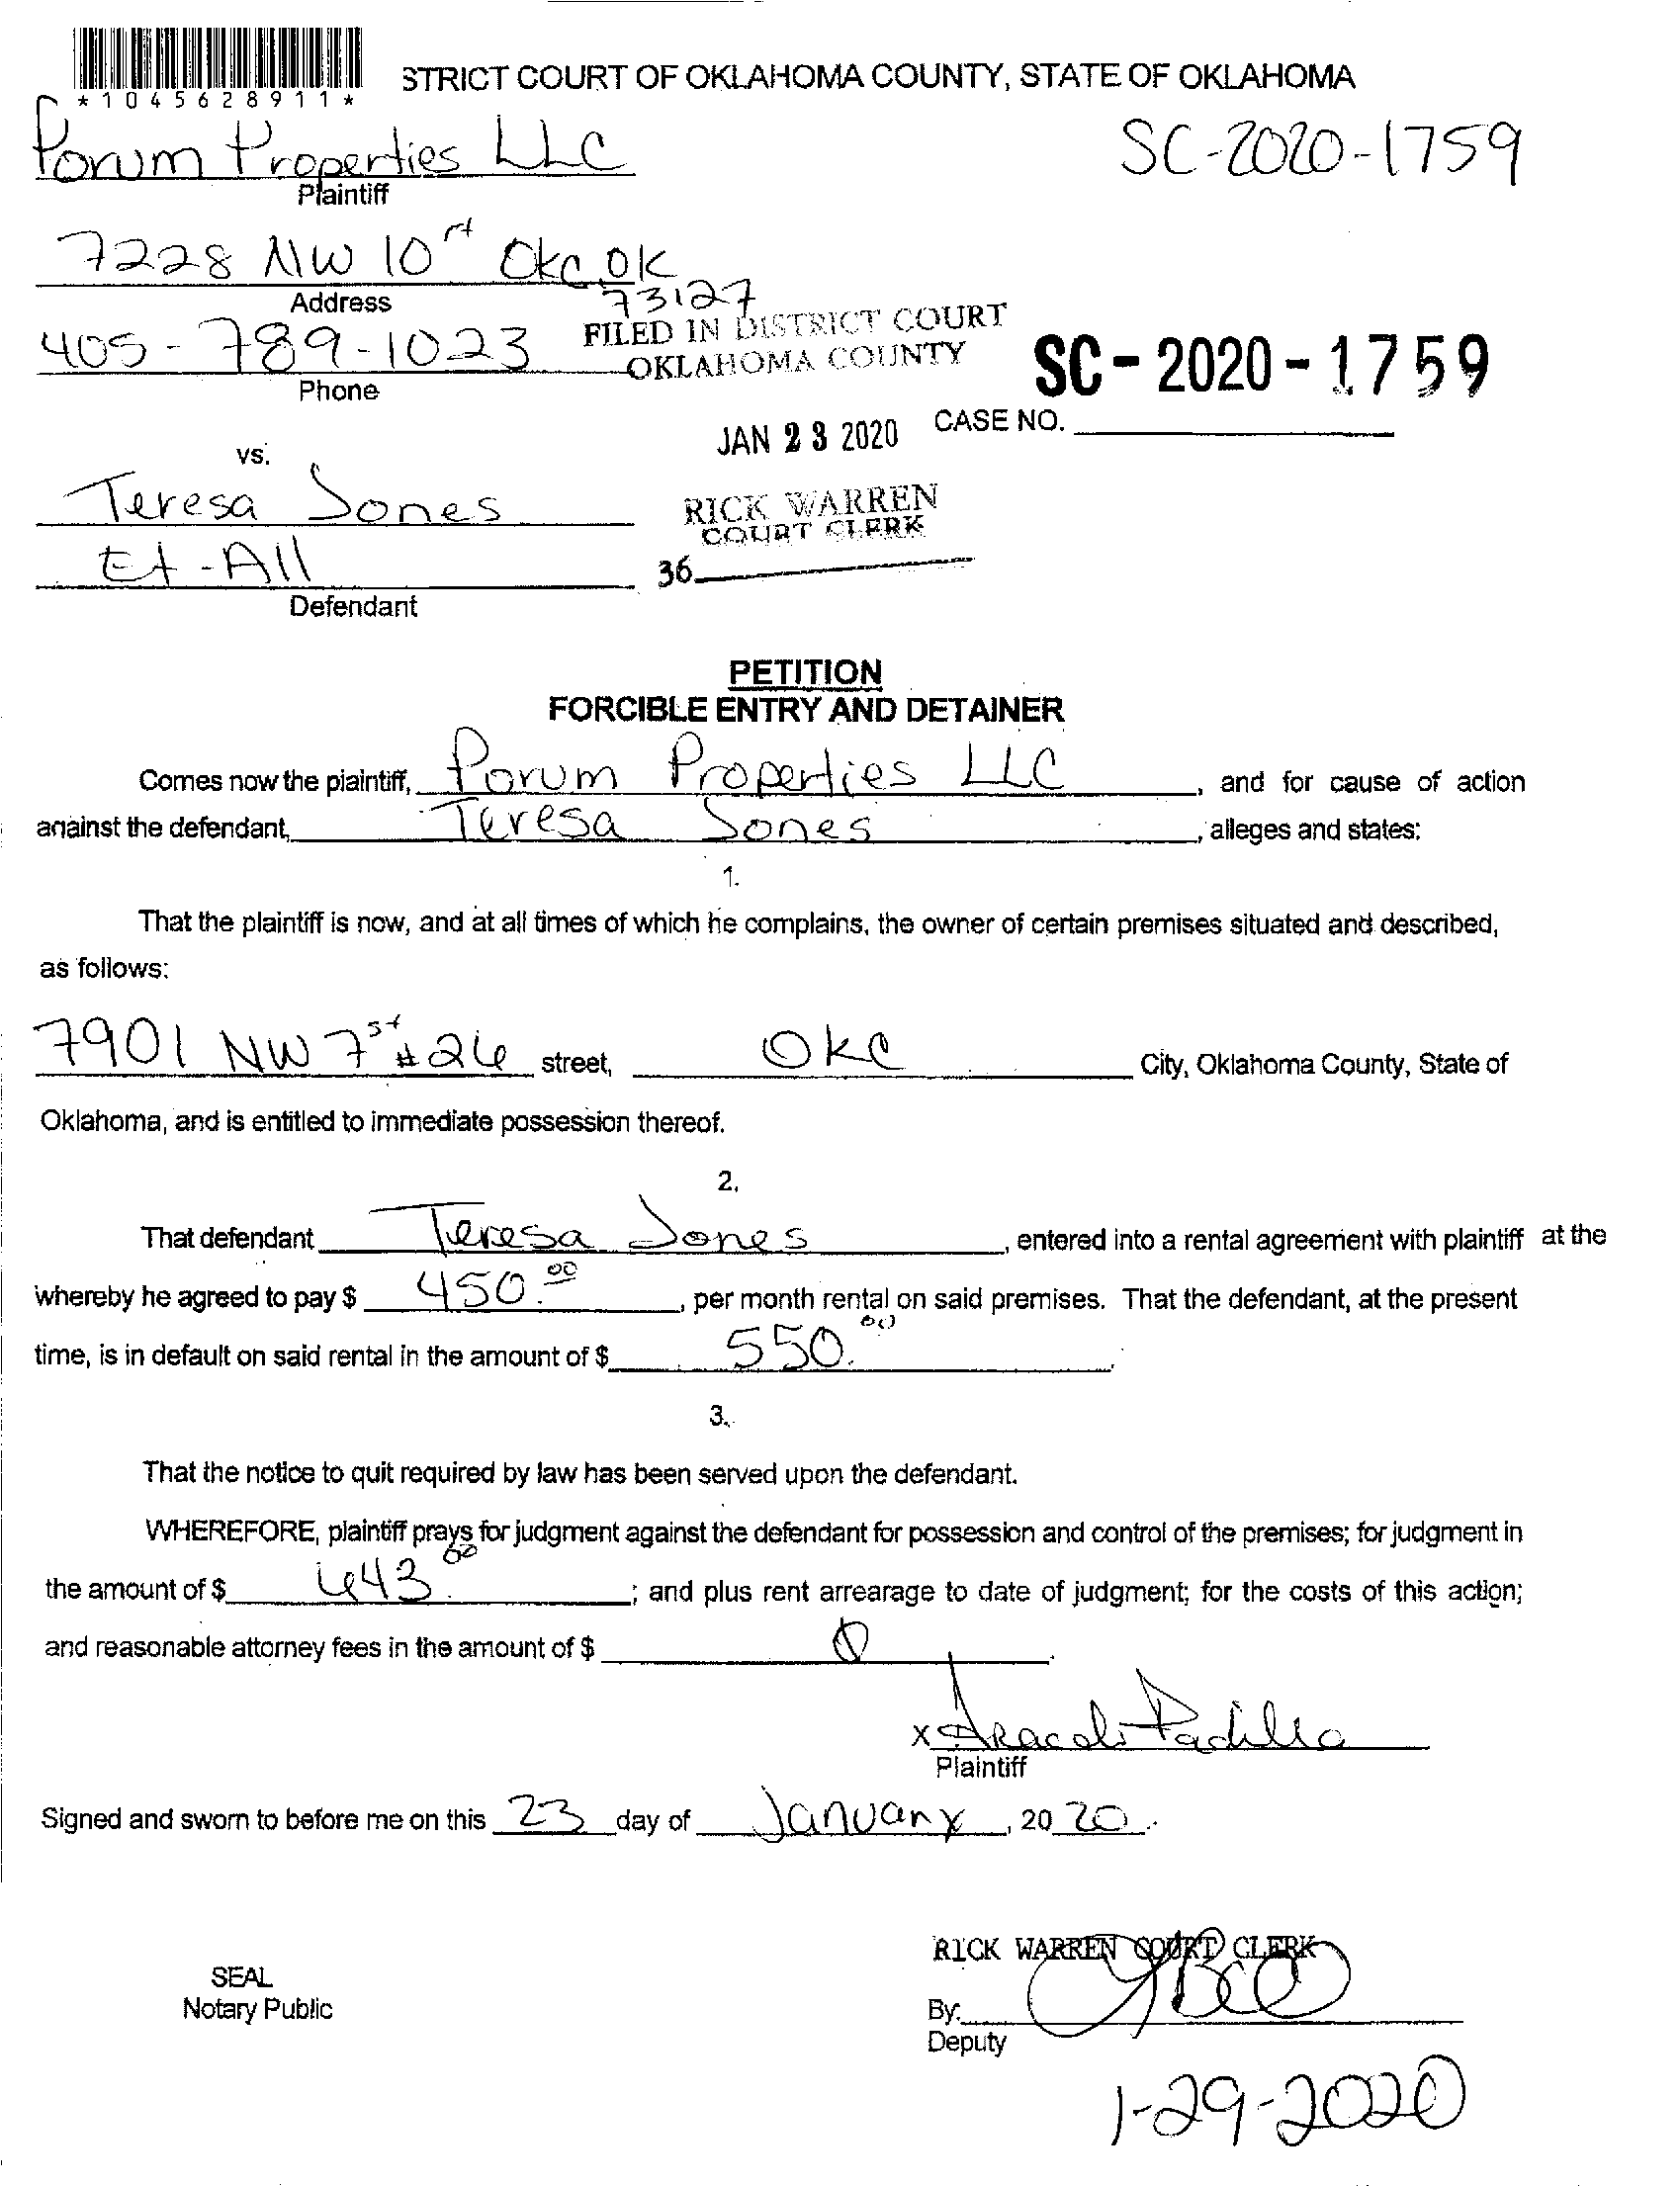 *1045628911*
STRICT COURT OF OKLAHOMA COUNTY, STATE OF OKLAHOMA
Porum Properties LLC
SC-2020-1759
Plaintiff
7228 NW 10 Okc OK
73127
Address
405-789-1023
Phone
FILED IN DISTRICT COURT
OKLAHOMA COUNTY
SC-2020-1759
JAN 23 2020
CASE NO.
vs.
Teresa Jones
Et-All
Defendant
RICK WARREN
COURT CLERK
36
PETITION
FORCIBLE ENTRY AND DETAINER
Comes now the plaintiff, Porum Properties LLC, and for cause of action
against the defendant, Teresa Jones, alleges and states:
1.
That the plaintiff is now, and at all times of which he complains, the owner of certain premises situated and described,
as follows:
7901 NW 7st #26 street, OKC City, Oklahoma County, State of
Oklahoma, and is entitled to immediate possession thereof.
2.
That defendant Teresa Jones, entered into a rental agreement with plaintiff at the
whereby he agreed to pay $ 450.00, per month rental on said premises. That the defendant, at the present
time, is in default on said rental in the amount of $ 550.00.
3.
That the notice to quit required by law has been served upon the defendant.
WHEREFORE, plaintiff prays for judgment against the defendant for possession and control of the premises; for judgment in
the amount of $ 643.00; and plus rent arrearage to date of judgment; for the costs of this action;
and reasonable attorney fees in the amount of $ 0.
x Aracali Padilla
Plaintiff
Signed and sworn to before me on this 23 day of January, 2020.
SEAL
Notary Public
RICK WARREN COURT CLERK
By:
Deputy
1-29-2020